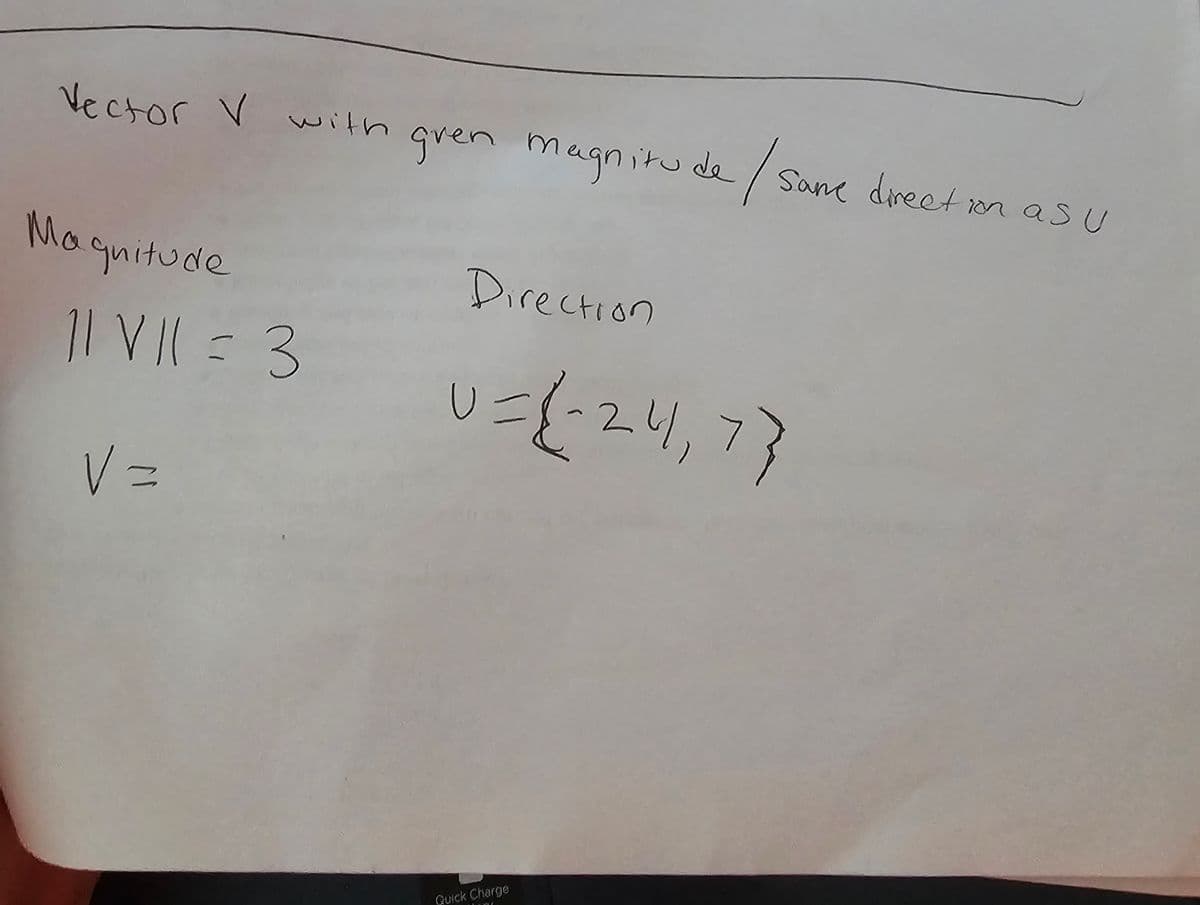 Vector V with given magnitude / same direction as U
Magnitude
Direction
|| V || = 3
U = {-24, 7}
V =
Quick Charge